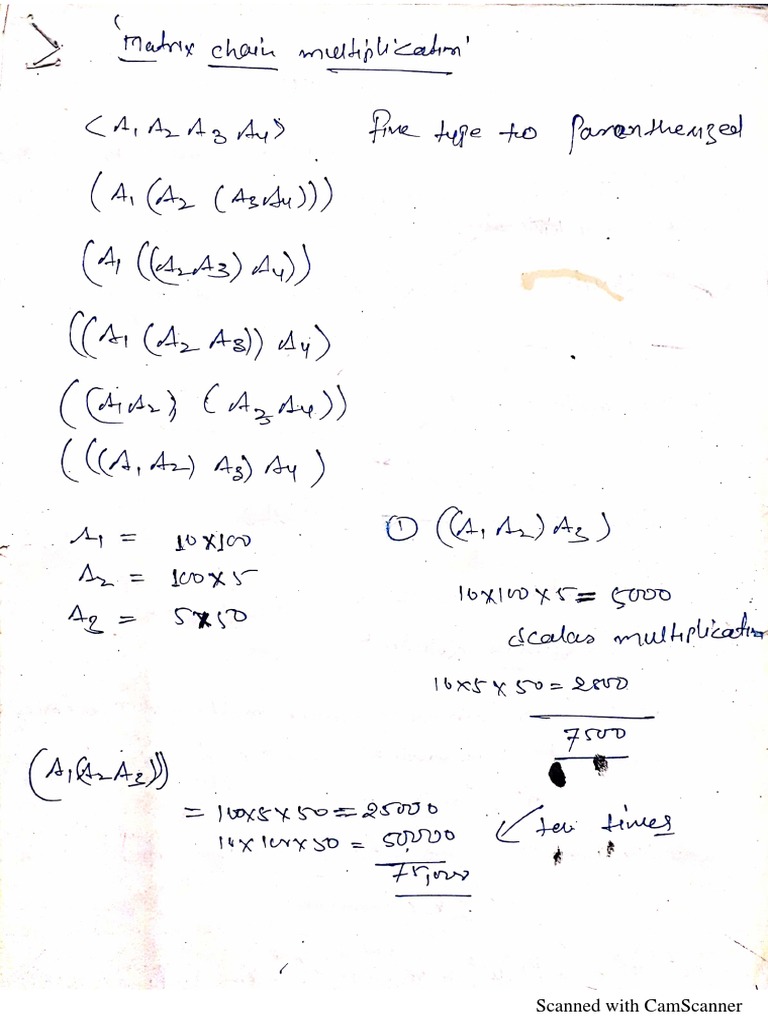 'Matrix chain multiplication'
<A1 A2 A3 A4> five type to Paranthenized
(A1 (A2 (A3A4)))
(A1 ((A2A3) A4))
((A1 (A2 A3)) A4)
((A1A2) (A3 A4))
(((A1 A2) A3) A4)
A1 = 10x100
A2 = 100x5
A3 = 5x50
① ((A1 A2) A3)
10x100x5 = 5000
scalas multiplication
10x5x50 = 2500
7500
(A1(A2A3))
= 100x5x50 = 25000
10x100x50 = 50,000
75,000
ten times
Scanned with CamScanner